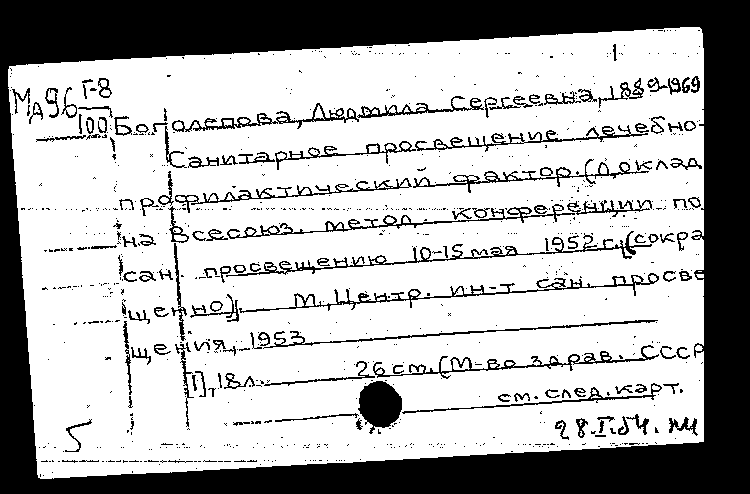 1
МД96 Г-8
100
Боголепова, Людмила Сергеевна, 1889-1969
Санитарное просвещение лечебно-
профилактический фактор. (Доклад
на Всесоюз. метод. конференции по
сан. просвещению 10-15 мая 1952 г. (сокра
щенно). М., Центр. ин-т сан. просве
щения, 1953
[1], 18 л. 26 см. (М-во здрав. СССР
см. след. карт.
5
28.I.54.